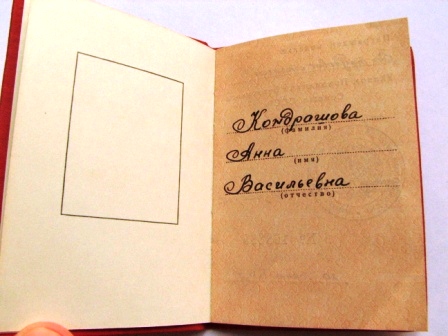 Кондрашова
(фамилия)
Анна
(имя)
Васильевна
(отчество)